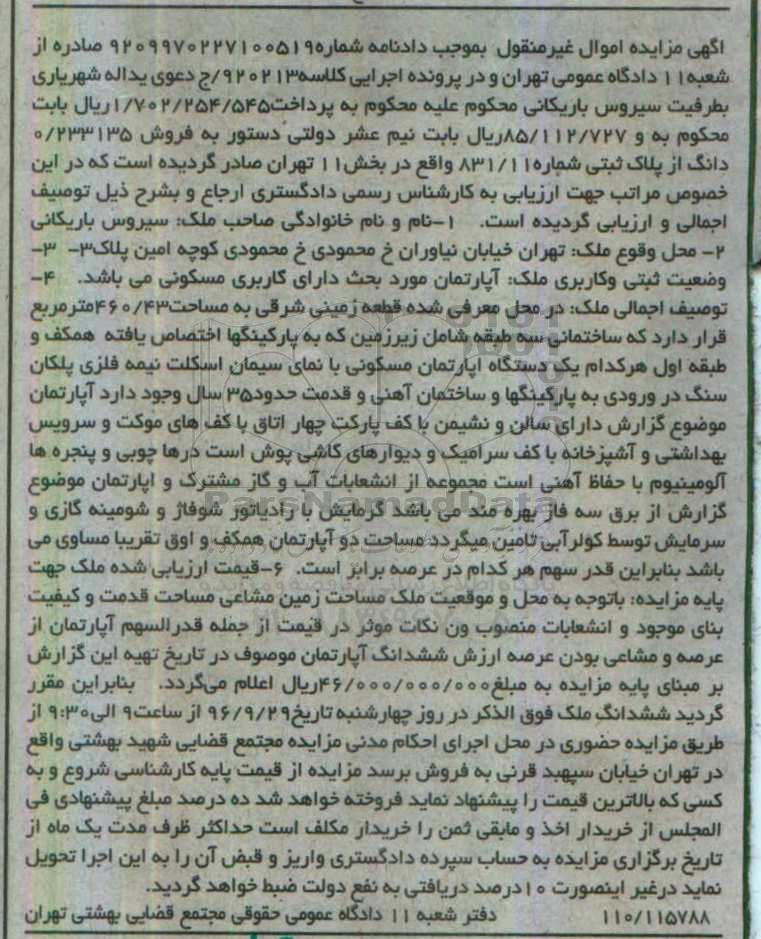 آگهی مزایده اموال غیرمنقول بموجب دادنامه شماره۹۲۰۹۹۷۰۲۲۷۱۰۰۵۱۹ صادره از
شعبه۱۱ دادگاه عمومی تهران و در پرونده اجرایی کلاسه۹۲۰۲۱۳/ج دعوی یداله شهریاری
بطرفیت سیروس باریکانی محکوم علیه محکوم به پرداخت۱/۷۰۲/۲۵۴/۵۴۵ریال بابت
محکوم به و ۸۵/۱۱۲/۷۲۷ریال بابت نیم عشر دولتی دستور به فروش ۰/۲۳۳۱۳۵
دانگ از پلاک ثبتی شماره۸۳۱/۱۱ واقع در بخش۱۱ تهران صادر گردیده است که در این
خصوص مراتب جهت ارزیابی به کارشناس رسمی دادگستری ارجاع و بشرح ذیل توصیف
اجمالی و ارزیابی گردیده است. ۱-نام و نام خانوادگی صاحب ملک: سیروس باریکانی
۲- محل وقوع ملک: تهران خیابان نیاوران خ محمودی خ محمودی کوچه امین پلاک۳- ۳-
وضعیت ثبتی وکاربری ملک: آپارتمان مورد بحث دارای کاربری مسکونی می باشد. ۴-
توصیف اجمالی ملک: در محل معرفی شده قطعه زمینی شرقی به مساحت۴۶۰/۴۳مترمربع
قرار دارد که ساختمانی سه طبقه شامل زیرزمین که به پارکینگها اختصاص یافته همکف و
طبقه اول هرکدام یک دستگاه اپارتمان مسکونی با نمای سیمان اسکلت نیمه فلزی پلکان
سنگ در ورودی به پارکینگها و ساختمان آهنی و قدمت حدود۳۵ سال وجود دارد آپارتمان
موضوع گزارش دارای سالن و نشیمن با کف پارکت چهار اتاق با کف های موکت و سرویس
بهداشتی و آشپزخانه با کف سرامیک و دیوارهای کاشی پوش است درها چوبی و پنجره ها
آلومینیوم با حفاظ آهنی است مجموعه از انشعابات آب و گاز مشترک و اپارتمان موضوع
گزارش از برق سه فاز بهره مند می باشد گرمایش با رادیاتور شوفاژ و شومینه گازی و
سرمایش توسط کولرآبی تامین میگردد مساحت دو آپارتمان همکف و اوق تقریبا مساوی می
باشد بنابراین قدر سهم هر کدام در عرصه برابر است. ۶-قیمت ارزیابی شده ملک جهت
پایه مزایده: باتوجه به محل و موقعیت ملک مساحت زمین مشاعی مساحت قدمت و کیفیت
بنای موجود و انشعابات منصوب ون نکات موثر در قیمت از جمله قدرالسهم آپارتمان از
عرصه و مشاعی بودن عرصه ارزش ششدانگ آپارتمان موصوف در تاریخ تهیه این گزارش
بر مبنای پایه مزایده به مبلغ۴۶/۰۰۰/۰۰۰/۰۰۰ریال اعلام می‌گردد. بنابراین مقرر
گردید ششدانگ ملک فوق الذکر در روز چهارشنبه تاریخ۹۶/۹/۲۹ از ساعت۹ الی۹:۳۰ از
طریق مزایده حضوری در محل اجرای احکام مدنی مزایده مجتمع قضایی شهید بهشتی واقع
در تهران خیابان سپهبد قرنی به فروش برسد مزایده از قیمت پایه کارشناسی شروع و به
کسی که بالاترین قیمت را پیشنهاد نماید فروخته خواهد شد ده درصد مبلغ پیشنهادی فی
المجلس از خریدار اخذ و مابقی ثمن را خریدار مکلف است حداکثر ظرف مدت یک ماه از
تاریخ برگزاری مزایده به حساب سپرده دادگستری واریز و قبض آن را به این اجرا تحویل
نماید درغیر اینصورت ۱۰درصد دریافتی به نفع دولت ضبط خواهد گردید.
۱۱۰/۱۱۵۷۸۸ دفتر شعبه ۱۱ دادگاه عمومی حقوقی مجتمع قضایی بهشتی تهران
ParsNamadData